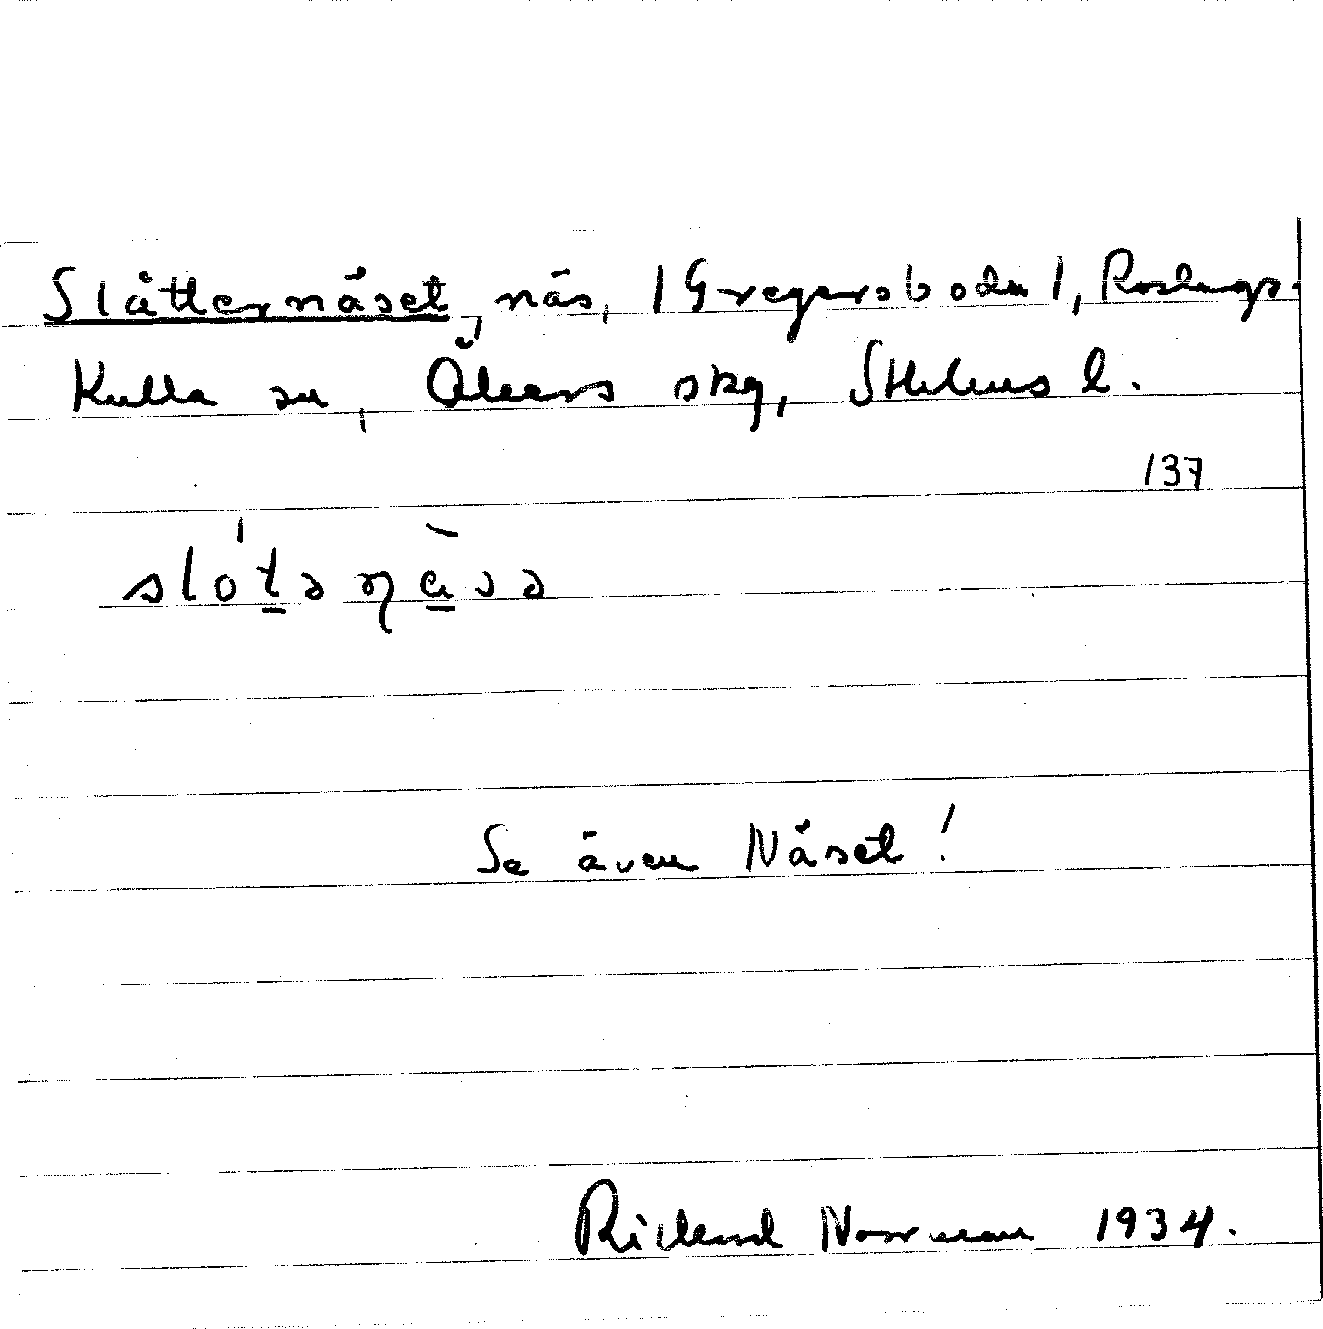 Slåtternäset, näs, 1 Gregersboda 1, Roslags-
Kulla sn, Åkers skg, Sthlms l.
137
Se även Näset!
Rickard Norrman 1934.